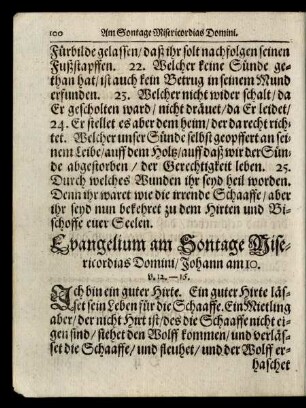 100 Am Sontage Misericordias Domini.
Fürbilde gelassen / daß ihr solt nachfolgen seinen
Fußstapffen. 22. Welcher keine Sünde ge-
than hat / ist auch kein Betrug in seinem Mund
erfunden. 23. Welcher nicht wider schalt / da
Er gescholten ward / nicht dräuet / da Er leidet /
24. Er stellet es aber dem heim / der da recht rich-
tet. Welcher unser Sünde selbst geopffert an sei-
nem Leibe / auff dem Holtz / auff daß wir der Sün-
de abgestorben / der Gerechtigkeit leben. 25.
Durch welches Wunden ihr seyd heil worden.
Denn ihr waret wie die irrende Schaaffe / aber
ihr seyd nun bekehret zu dem Hirten und Bi-
schoffe euer Seelen.
Evangelium am Sontage Mise-
ricordias Domini / Johann am 10.
v. 12. — 16.
Ich bin ein guter Hirte. Ein guter Hirte läs-
set sein Leben für die Schaaffe. Ein Mietling
aber / der nicht Hirt ist / des die Schaaffe nicht ei-
gen sind / siehet den Wolff kommen / und verläs-
set die Schaaffe / und fleuhet / und der Wolff er-
haschet